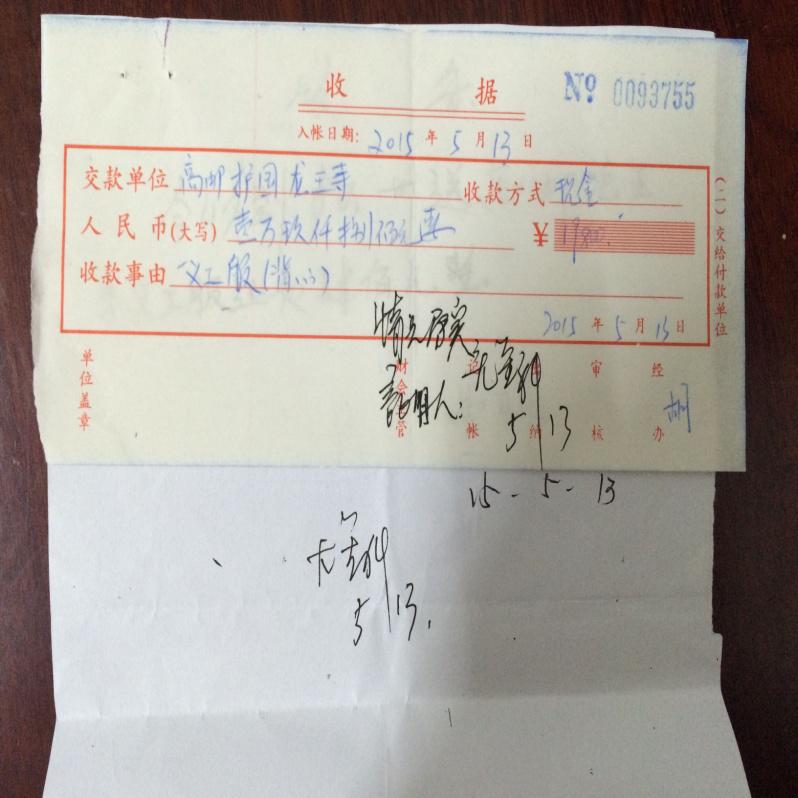 收 据
Nº 0093755
入帐日期: 2015 年 5 月 13 日
交款单位 高邮护国龙王寺 收款方式 现金
人民币(大写) 壹万玖仟捌佰元正 ¥ 19800.
收款事由 义工服
(二)交给付款单位
2015 年 5 月 13 日
情况属实
证明人:
5/13
单位盖章 财会主管 记帐 出纳 审核 经办
15-5-13
5/13.